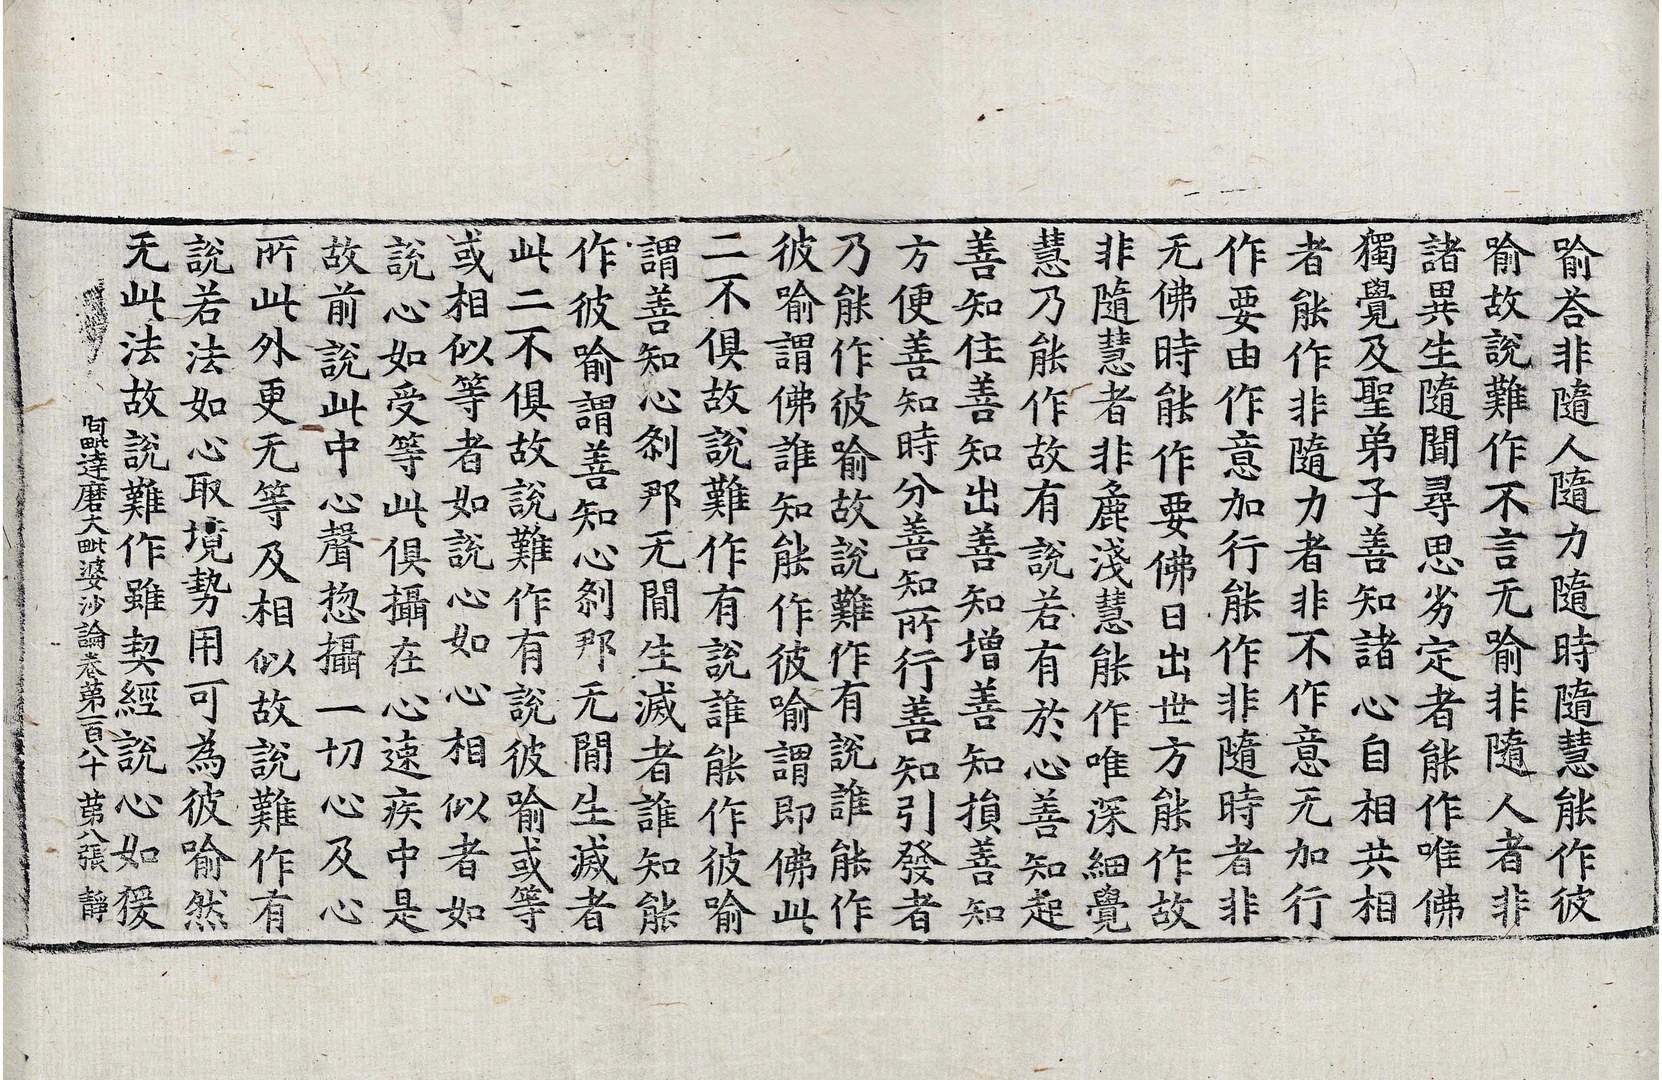 喻荅非隨人隨力隨時隨慧能作彼
喻故說難作不言无喻非隨人者非
諸異生隨聞尋思劣定者能作唯佛
獨覺及聖弟子善知諸心自相共相
者能作非隨力者非不作意无加行
作要由作意加行能作非隨時者非
无佛時能作要佛日出世方能作故
非隨慧者非麁淺慧能作唯深細覺
慧乃能作故有說若有於心善知起
善知住善知出善知增善知損善知
方便善知時分善知所行善知引發者
乃能作彼喻故說難作有說誰能作
彼喻謂佛誰知能作彼喻謂即佛此
二不俱故說難作有說誰能作彼喻
謂善知心剎那无間生滅者誰知能
作彼喻謂善知心剎那无間生滅者
此二不俱故說難作有說彼喻或等
或相似等者如說心如心相似者如
說心如受等此俱攝在心速疾中是
故前說此中心聲惣攝一切心及心
所此外更无等及相似故說難作有
說若法如心取境勢用可為彼喻然
无此法故說難作雖契經說心如猨
阿毗達磨大毗婆沙論卷第一百八十 苐八張 靜